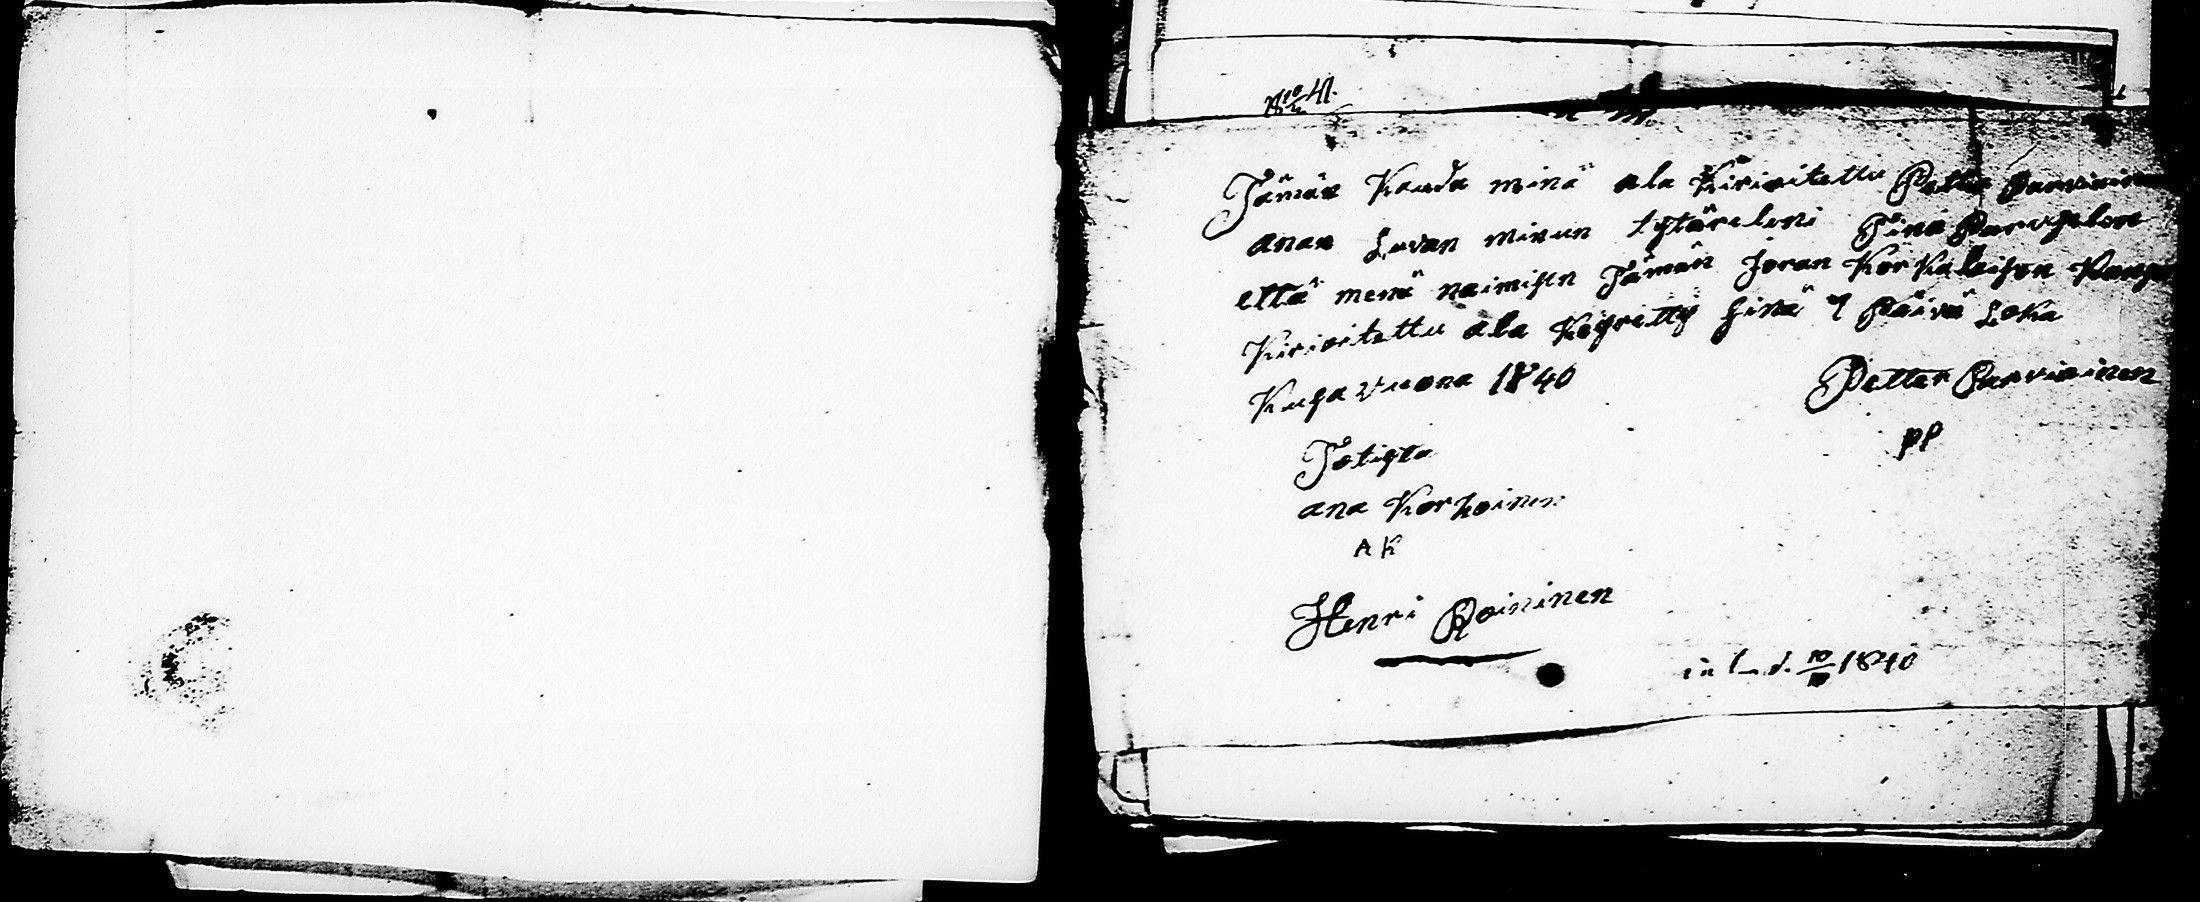 Tämän Kauda minä ala Kirioitettu Petter Parviainen
anan Luvan minun tytärelleni Tina
että menä naimisen Tämän Joran Korkalaisen Kansa
Kirioitettu ala Keyretty Sinä 7 Päivä Loka
Kusa Vuona 1840
Petter Parviainen
PP
Totista
ana Korhoinen
AK
Henri Roininen
1840